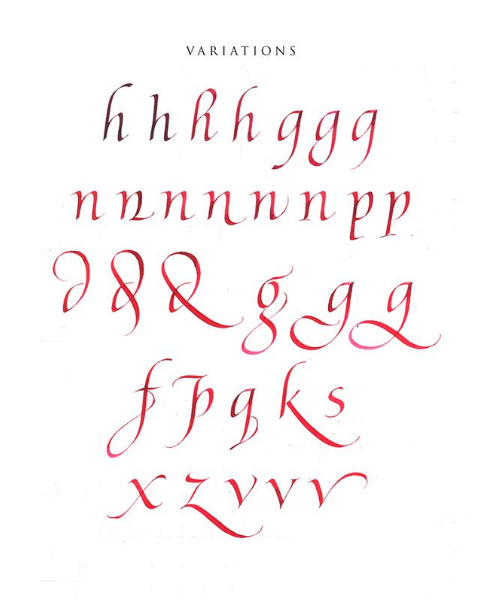 VARIATIONS
h h h h g g g
n n n n n n n p p
d d d g g g
f p q k s
x z v v v